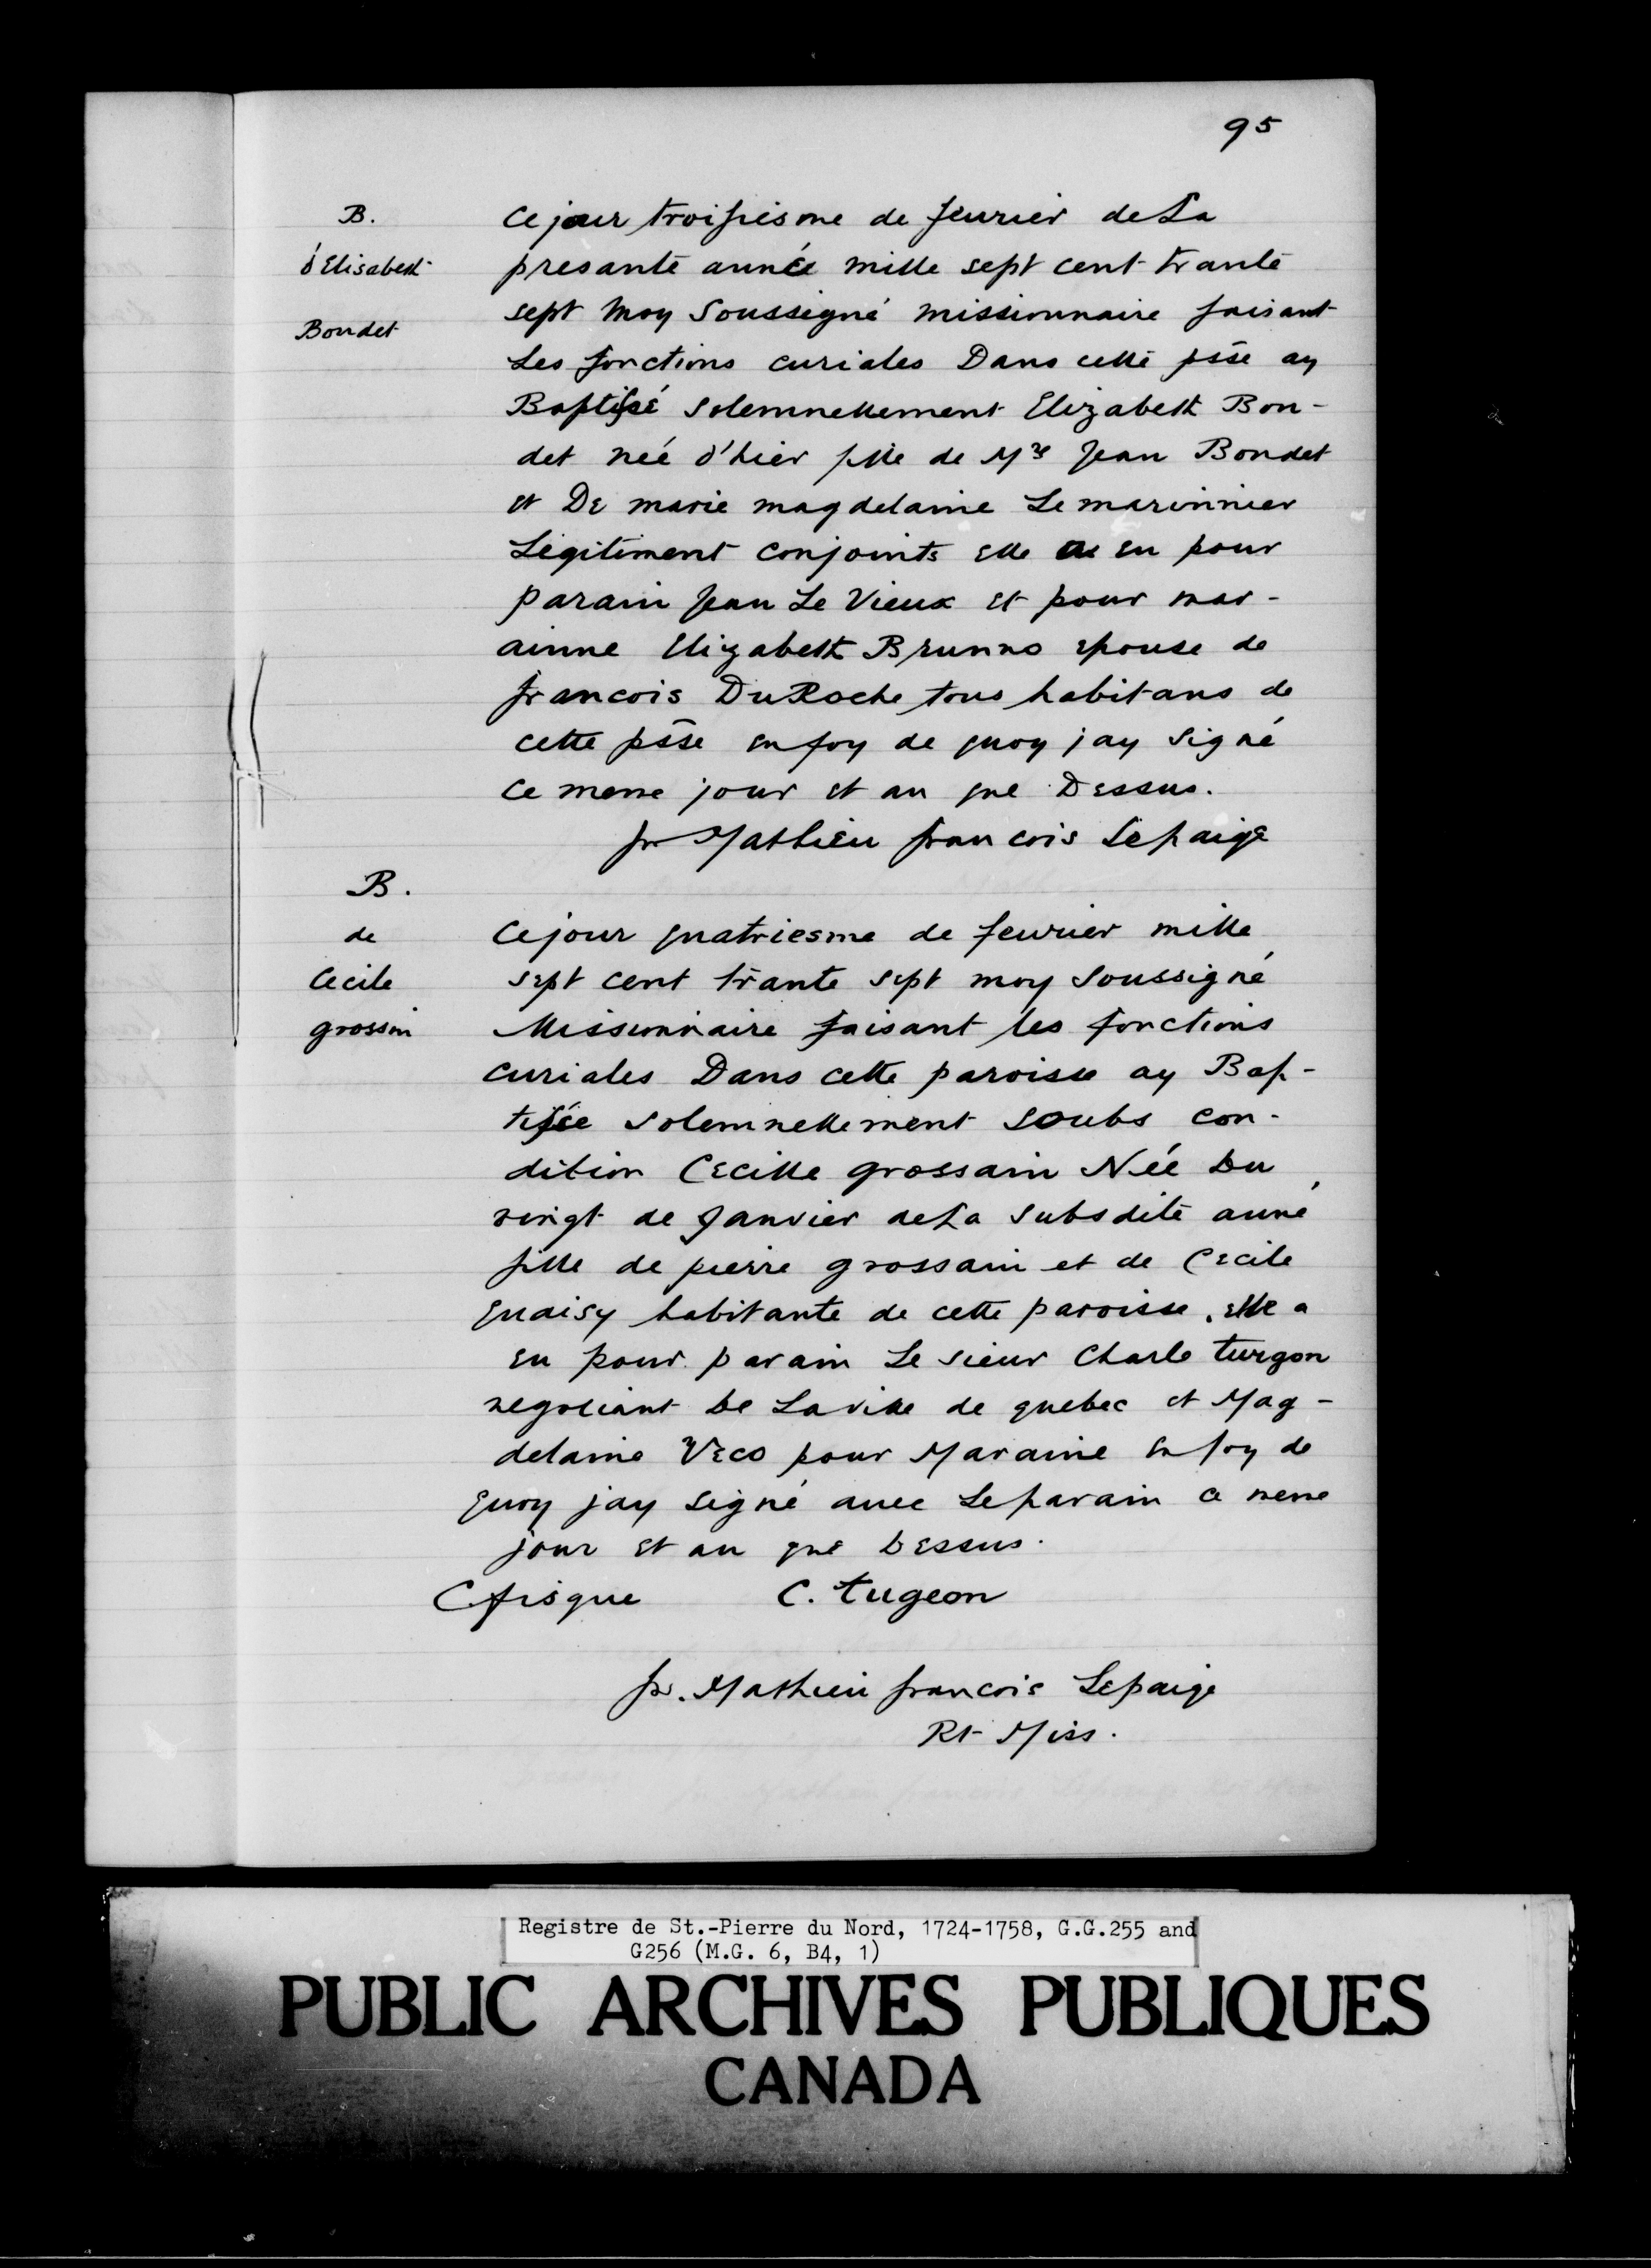 95
B.
d'Elisabeth
Bondet
ce jour troisiesme de feurier de La
presante année mille sept cent trante
sept Moy Soussigné missionnaire faisant
Les fonctions curiales Dans cette psse ay
Baptisé solemnellement Elizabeth Bon-
det née d'hier fille de Mre Jean Bondet
et De marie magdelaine Le marinnier
Légitiment conjoints elle a eu pour
parain Jean Le Vieux et pour mar-
ainne Elizabeth Brunno epouse de
francois DuRoche tous habitans de
cette psse en foy de quoy jay Signé
ce meme jour et an que Dessus.
fr Mathieu francois Lepaige
B.
de
Cecile
grossin
Ce jour quatriesme de feurier mille
sept cent trante sept moy Soussigné
Missionnaire faisant les fonctions
curiales Dans cette paroisse ay Bap-
tisée solemnellement soubs con-
dition Cecille grossain Née Du
vingt de Janvier de La Subsdite anné
fille de pierre grossain et de Cecile
quaisy habitante de cette paroisse. elle a
eu pour parain Le sieur Charle turgon
negociant De La ville de quebec et Mag-
delaine Veco pour Maraine en foy de
quoy jay Signé auec Le parain ce meme
jour et an que Dessus.
C. tugeon
fr. Mathieu francois Lepaige
Rt Miss.
Registre de St.-Pierre du Nord, 1724-1758, G.G.255 and
G256 (M.G. 6, B4, 1)
PUBLIC ARCHIVES PUBLIQUES
CANADA